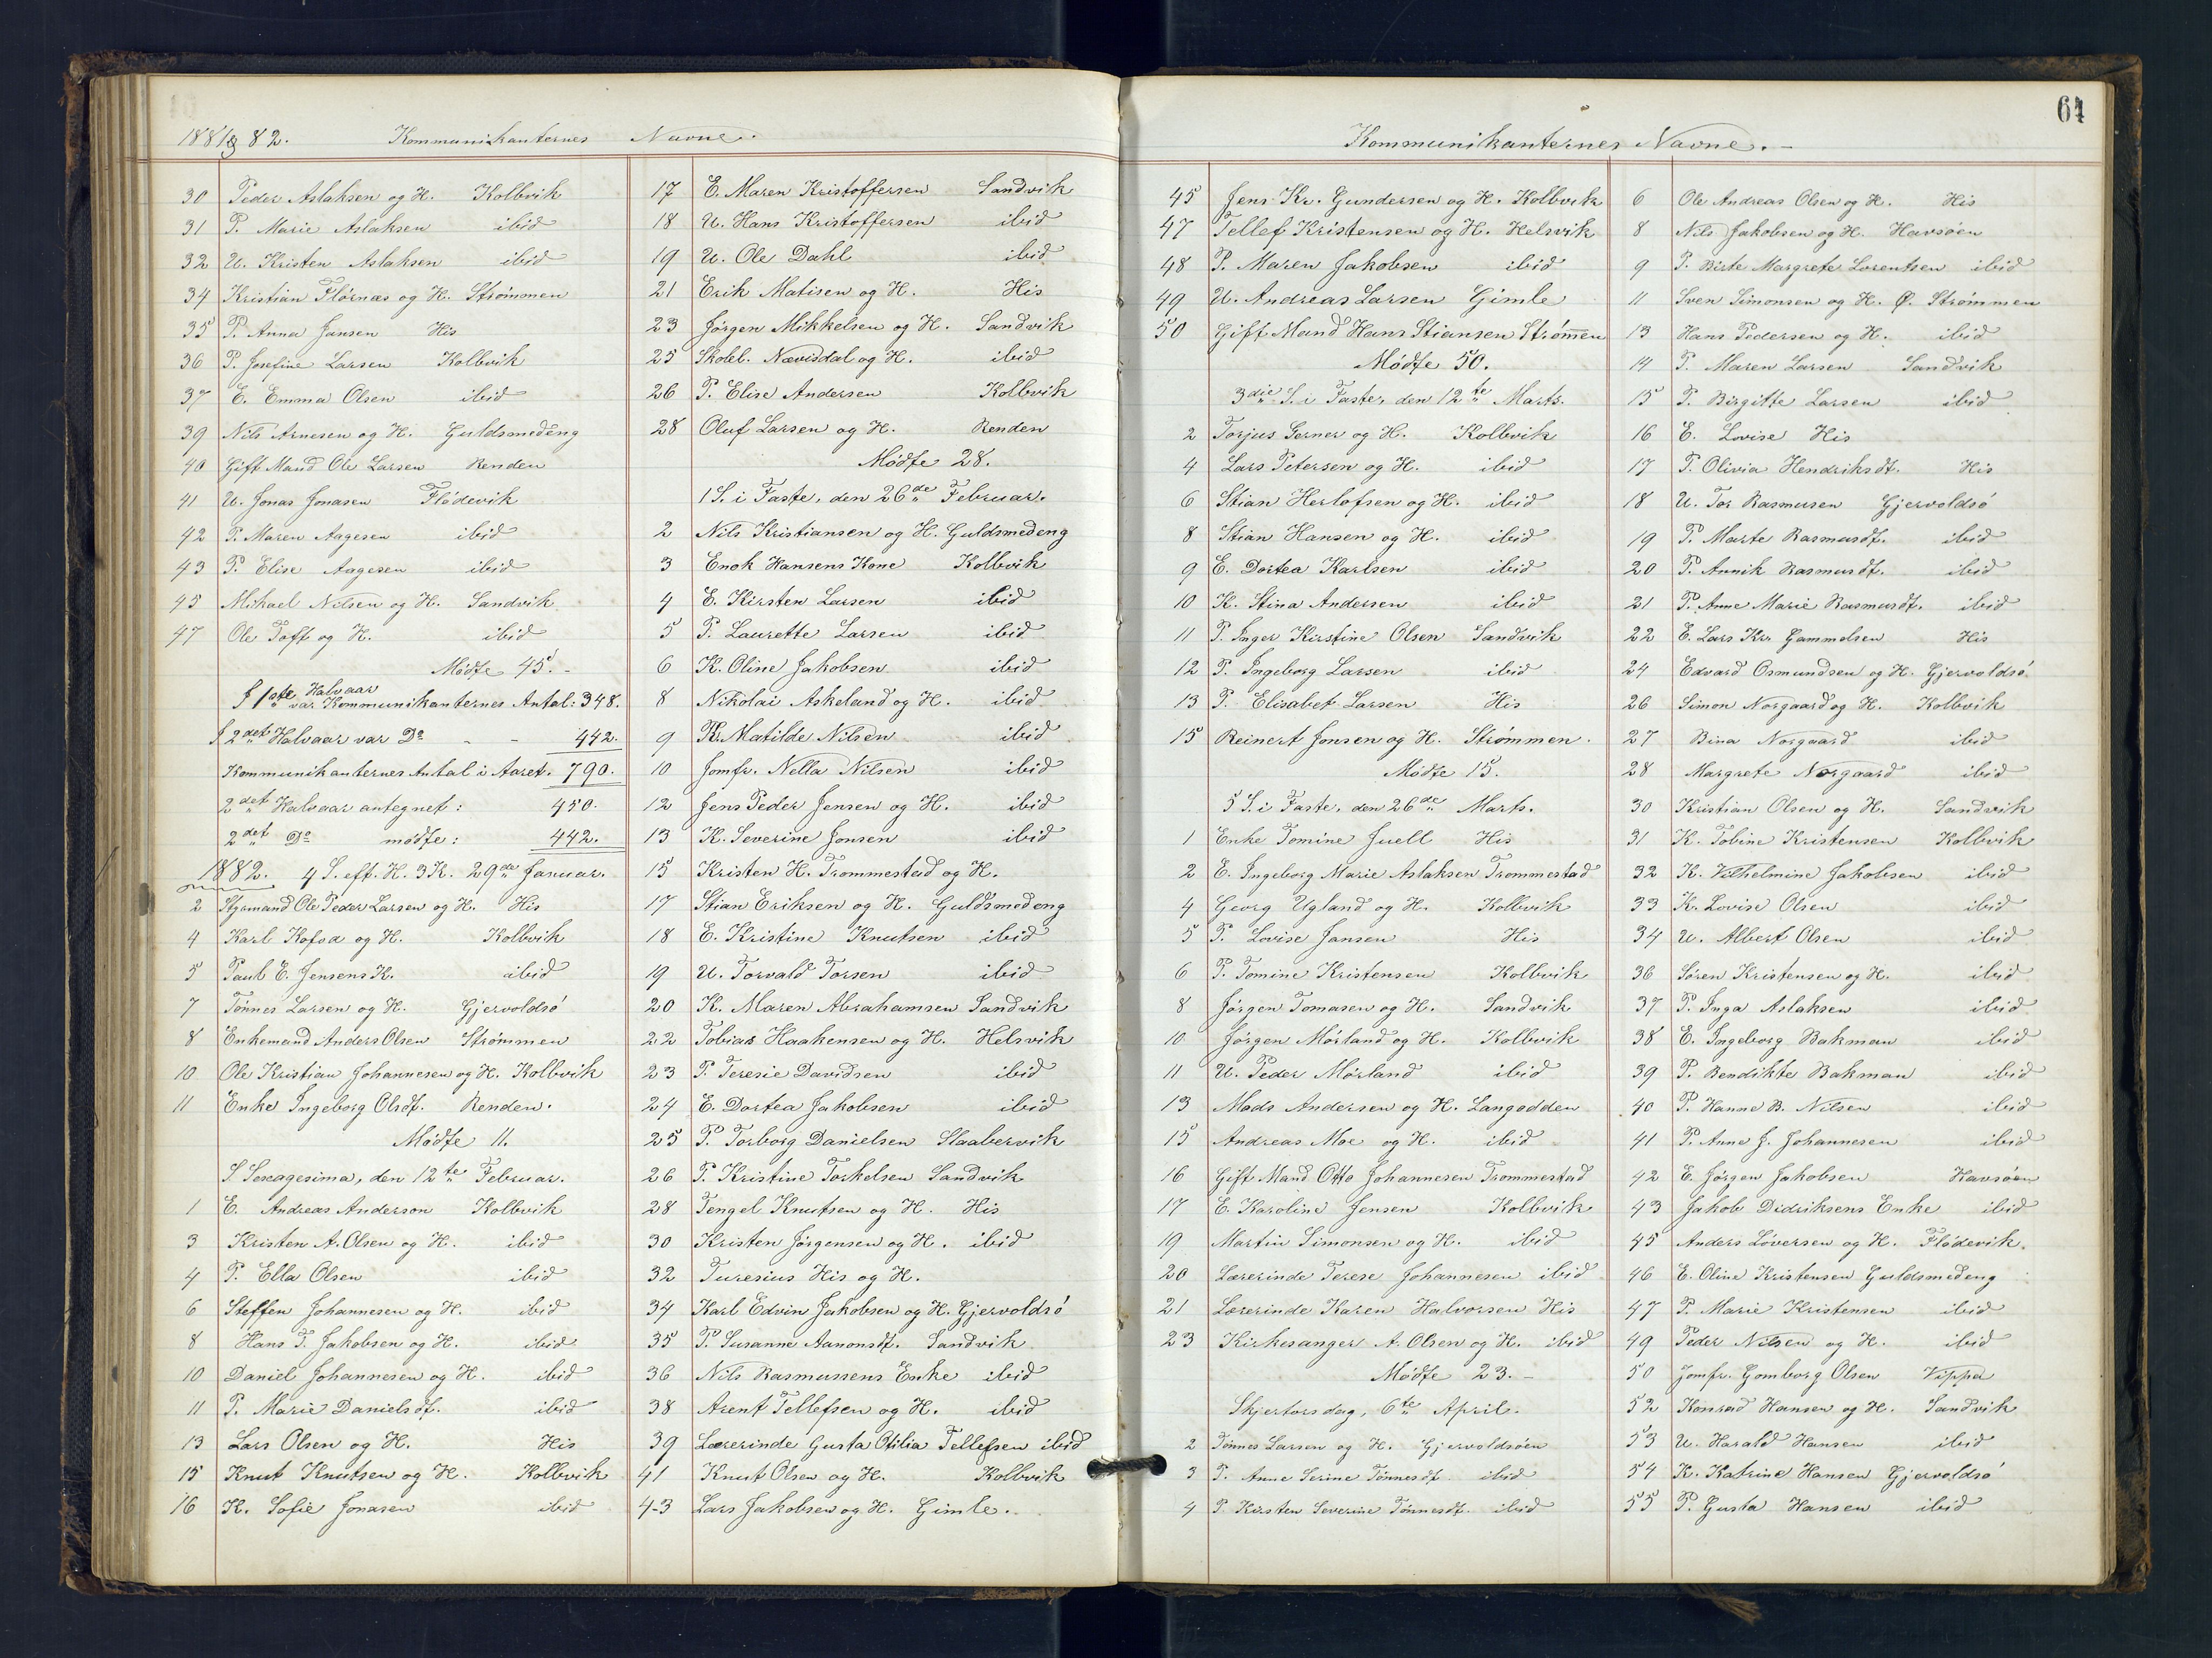 1881 & 82. Kommunikanternes Navne.
30 Peder Aslaksen og H. Kolbvik
31 P. Marie Aslaksen ibid
32 U. Kristen Aslaksen ibid
34 Kristian Flörnæs og H. Strömmen
35 P. Anna Jansen His
36 P. Josefine Larsen Kolbvik
37 E. Emma Olsen ibid
39 Nils Arnesen og H. Guldsmedeng
40 Gift Mand Ole Larsen Renden
41 U. Jonas Jonasen Flödevik
42 P. Maren Aagesen ibid
43 P. Elise Aagesen ibid
45 Mikael Nilsen og H. Sandvik
47 Ole Toft og H. ibid
Mödte 45.
I 1ste Halvaar var Kommunikanternes Antal: 348.
I 2det Halvaar var Do - - 442.
Kommunikanternes Antal i Aaret. 790.
2det Halvaar antegnet: 450.
2det Do mödte: 442.
1882. 4 S. eft. H. 3 K. 29de Januar.
2 Styrmand Ole Peder Larsen og H. His
4 Karl Kofod og H. Kolbvik
5 Paul E. Jensens K. ibid
7 Tönnes Larsen og H. Gjervoldsö
8 Enkemand Anders Olsen Strömmen
10 Ole Kristian Johannesen og H. Kolbvik
11 Enke Ingeborg Olsdt. Renden.
Mödte 11.
S. Sexagesima, den 12te Februar.
1 E. Andreas Anderson Kolbvik
3 Kristen A. Olsen og H. ibid
4 P. Ella Olsen ibid
6 Steffen Johannesen og H. ibid
8 Hans T. Jakobsen og H. ibid
10 Daniel Johannesen og H. ibid
11 P. Marie Danielsdt. ibid
13 Lars Olsen og H. His
15 Knut Knutsen og H. Kolbvik
16 K. Sofie Jonasen ibid
17 E. Maren Kristoffersen Sandvik
18 U. Hans Kristoffersen ibid
19 U. Ole Dahl ibid
21 Erik Matisen og H. His
23 Jörgen Mikkelsen og H. Sandvik
25 Skolel. Nævisdal og H. ibid
26 P. Elise Andersen Kolbvik
28 Oluf Larsen og H. Renden
Mödte 28.
1 S. i Faste, den 26de Februar.
2 Nils Kristiansen og H. Guldsmedeng
3 Enok Hansens Kone Kolbvik
4 E. Kirsten Larsen ibid
5 P. Laurette Larsen ibid
6 K. Oline Jakobsen ibid
8 Nikolai Askeland og H. ibid
9 K. Matilde Nilsen ibid
10 Jomfr. Nella Nilsen ibid
12 Jens Peder Jensen og H. ibid
13 K. Severine Jonsen ibid
15 Kristen H. Trommestad og H.
17 Stian Eriksen og H. Guldsmedeng
18 E. Kristine Knutsen ibid
19 U. Torvald Torsen ibid
20 K. Maren Abrahamsen Sandvik
22 Tobias Haakensen og H. Helsvik
23 P. Teresie Davidsen ibid
24 E. Dortea Jakobsen ibid
25 P. Torborg Danielsen Staabervik
26 P. Kristine Torkelsen Sandvik
28 Tengel Knutsen og H. His
30 Kristen Jörgensen og H. ibid
32 Turesius His og H.
34 Karl Edvin Jakobsen og H. Gjervoldsö
35 P. Susanne Aanonsdt. Sandvik
36 Nils Rasmussens Enke ibid
38 Arent Tellefsen og H. ibid
39 Lærerinde Gusta Otilia Tellefsen ibid
41 Knut Olsen og H. Kolbvik
43 Lars Jakobsen og H. Gimle.
64
Kommunikanternes Navne.
45 Jens Kr. Gundersen og H. Kolbvik
47 Tellef Kristensen og H. Helsvik
48 P. Maren Jakobsen ibid
49 U. Andreas Larsen Gimle
50 Gift Mand Hans Stiansen Strömen
Mödte 50.
3die S. i Faste, den 12te Marts.
2 Torjus Gerner og H. Kolbvik
4 Lars Petersen og H. ibid
6 Stian Herlofsen og H. ibid
8 Stian Hansen og H. ibid
9 E. Dortea Karlsen ibid
10 K. Stina Andersen ibid
11 P. Inger Kirstine Olsen Sandvik
12 P. Ingeborg Larsen ibid
13 P. Elisabet Larsen His
15 Reinert Jonsen og H. Strömmen.
Mödte 15.
5 S. i Faste, den 26de Marts.
1 Enke Tomine Juell His
2 E. Ingeborg Marie Aslaksen Trommestad
4 Georg Ugland og H. Kolbvik
5 P. Lovise Jansen His
6 P. Tomine Kristensen Kolbvik
8 Jörgen Tomasen og H. Sandvik
10 Jörgen Mörland og H. Kolbvik
11 U. Peder Mörland ibid
13 Mads Andersen og H. Langodden
15 Andreas Moe og H. ibid
16 Gift Mand Otto Johannesen Trommestad
17 E. Karoline Jensen Kolbvik
19 Martin Simonsen og H. ibid
20 Lærerinde Terese Johannesen ibid
21 Lærerinde Karen Halvorsen His
23 Kirkesanger A. Olsen og H. ibid
Mödte 23.
Skjertorsdag, 6te April.
2 Tönnes Larsen og H. Gjervoldsöen
3 P. Anne Serine Tönnesdt. ibid
4 P. Kirsten Severine Tönnesdt. ibid
6 Ole Andreas Olsen og H. His
8 Nils Jakobsen og H. Havsöen
9 P. Birte Margrete Lorentsen ibid
11 Sven Simonsen og H. Ø. Strömmen
13 Hans Pedersen og H. ibid
14 P. Maren Larsen Sandvik
15 P. Birgitte Larsen ibid
16 E. Lovise His
17 P. Olivia Hendriksdt. His
18 U. Tor Rasmusen Gjervoldsö
19 P. Marte Rasmusdt. ibid
20 P. Annik Rasmusdt. ibid
21 P. Anne Marie Rasmusdt. ibid
22 E. Lars Kr. Gammelsen His
24 Edvard Osmundsen og H. Gjervoldsö
26 Simon Norgaard og H. Kolbvik
27 Bina Norgaard ibid
28 Margrete Norgaard ibid
30 Kristian Olsen og H. Sandvik
31 K. Tobine Kristensen Kolbvik
32 K. Vilhelmine Jakobsen ibid
33 K. Lovise Olsen ibid
34 U. Albert Olsen ibid
36 Sören Kristensen og H. ibid
37 P. Inga Aslaksen ibid
38 E. Ingeborg Bakman ibid
39 P. Bendikte Bakman ibid
40 P. Hanne B. Nilsen ibid
41 P. Anne J. Johannesen ibid
42 E. Jörgen Jakobsen Havsöen
43 Jakob Didriksens Enke ibid
45 Anders Löversen og H. Flödevik.
46 E. Oline Kristensen Guldsmedeng
47 P. Marie Kristensen ibid
49 Peder Nilsen og H. ibid
50 Jomfr. Gomborg Olsen Vippa
52 Konrad Hansen og H. Sandvik
53 U. Harald Hansen ibid
54 K. Katrine Hansen Gjervoldsö
55 P. Gusta Hansen ibid